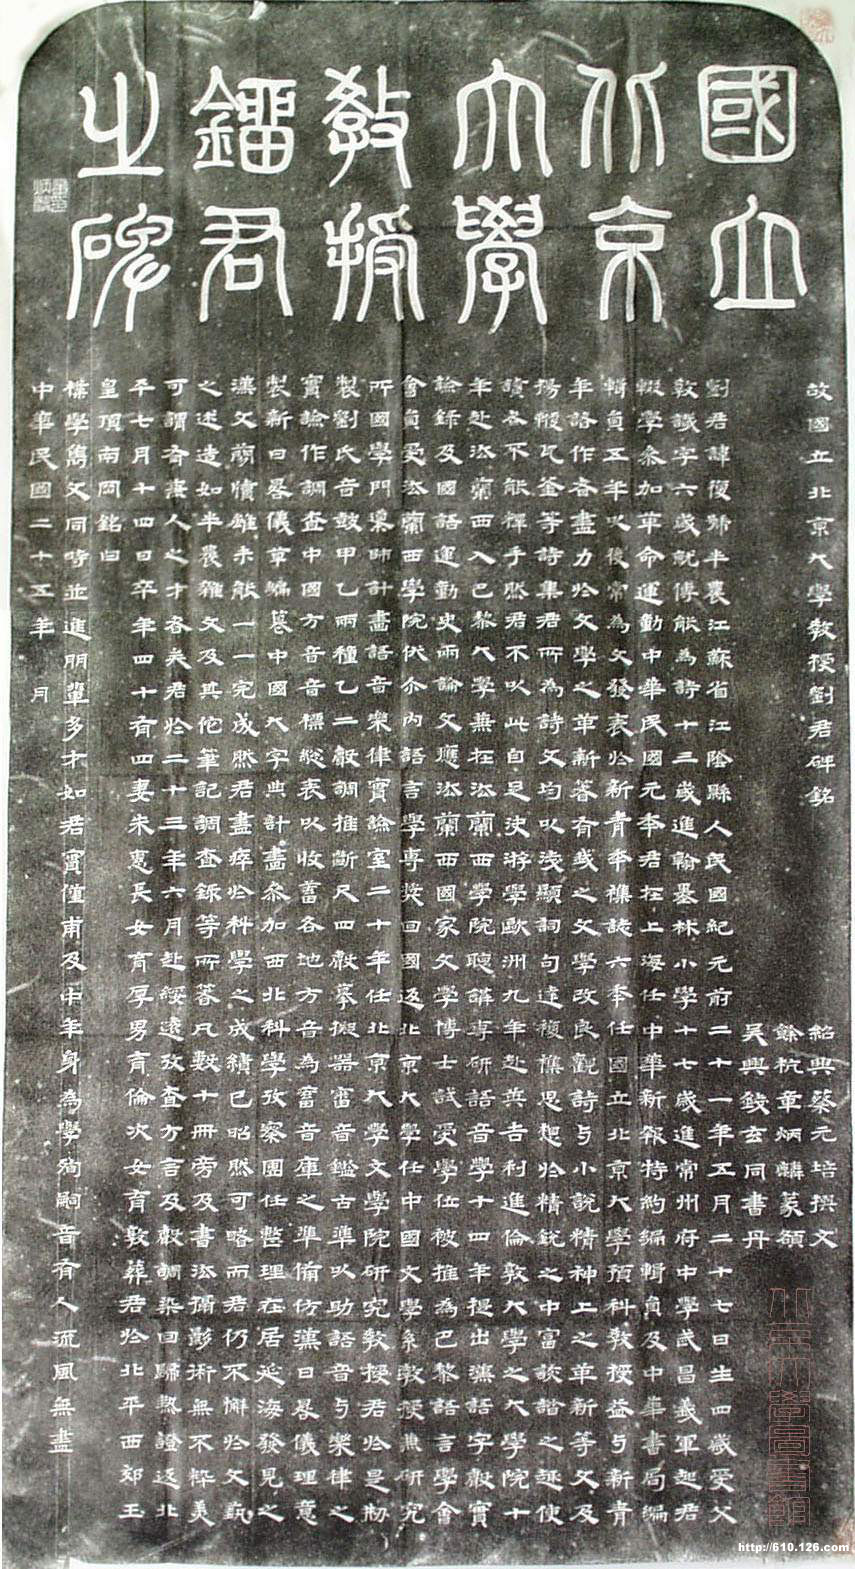 國立北京大學教授鎦君之碑
故國立北京大學教授劉君碑銘
紹興蔡元培撰文
餘杭章炳麟篆額
吳興錢玄同書丹
劉君諱復號半農江蘇省江陰縣人民國紀元前二十一年五月二十七日生四歲受父
教識字六歲就傅能為詩十三歲進翰墨林小學十七歲進常州府中學武昌義軍起君
輟學參加革命運動中華民國元年君在上海任中華新報特約編輯員及中華書局編
輯員五年以後常為文發表於新青年雜誌六年任國立北京大學預科教授益与新青
年諸作者盡力於文學之革新著有我之文學改良觀詩与小說精神上之革新等文及
揚鞭瓦釜等詩集君所為詩文均以淺顯詞句達複雜思想於精銳之中富詼諧之趣使
讀者不能釋手然君不以此自足決游學歐洲九年赴英吉利進倫敦大學之大學院十
年赴法蘭西入巴黎大學兼在法蘭西學院聽講專研語音學十四年提出漢語字聲實
驗錄及國語運動史兩論文應法蘭西國家文學博士試受學位被推為巴黎語言學會
會員受法蘭西學院伏尒內語言學專奬回國返北京大學任中國文學系教授兼研究
所國學門導師計畫語音樂律實驗室二十年任北京大學文學院研究教授君於是剏
製劉氏音鼓甲乙兩種乙二聲調推斷尺四聲摹擬器審音鑑古準以助語音与樂律之
實驗作調查中國方音音標總表以收蓄各地方音為蓄音庫之準備仿漢日晷儀理意
製新日晷儀草編纂中國大字典計畫參加西北科學攷察團任整理在居延海發見之
漢文簡牘雖未能一一完成然君盡瘁於科學之成績已昭然可略而君仍不懈於文藝
之述造如半農雜文及其佗筆記調查錄等所著凡數十冊旁及書法攝影術無不粹美
可謂有兼人之才者矣君於二十三年六月赴綏遠攷查方言及聲調染回歸熱證返北
平七月十四日卒年四十有四妻朱惠長女育厚男育倫次女育敦葬君於北平西郊玉
皇頂南岡銘曰
樸學雋文同時並進朋輩多才如君實僅甫及中年身為學殉嗣音有人流風無盡
中華民國二十五年 月
http://610.126.com